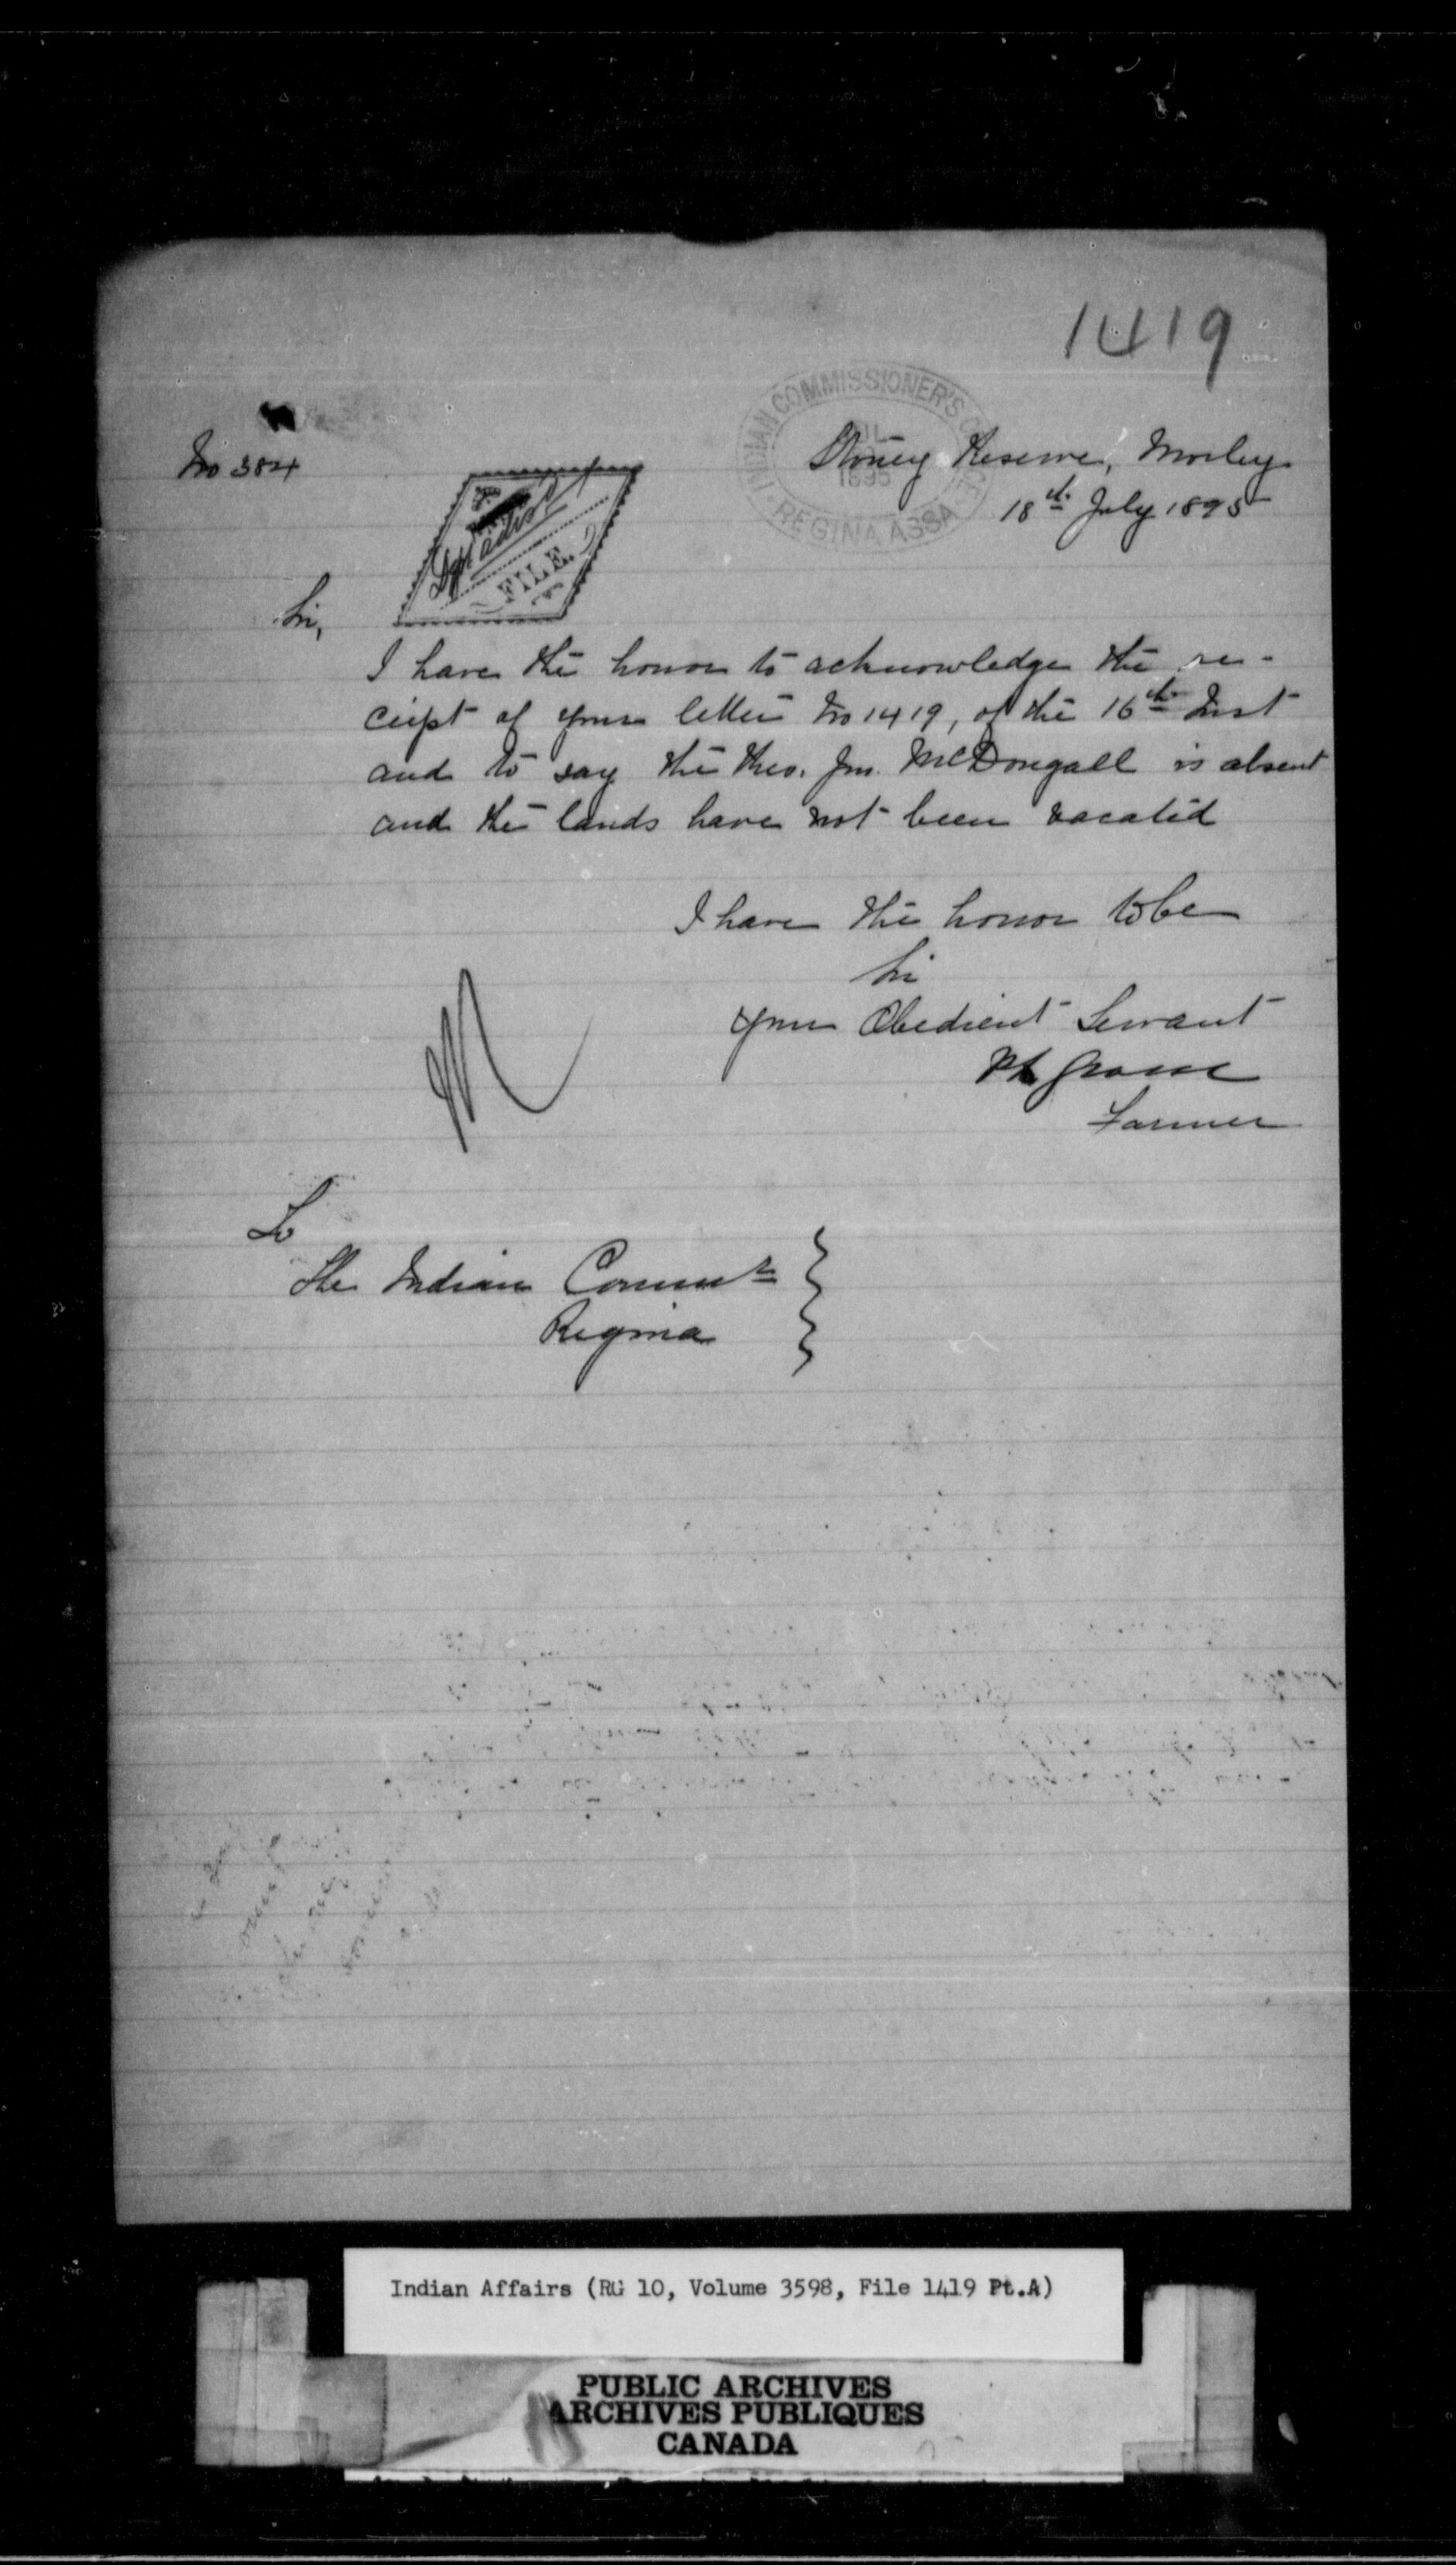 1419
INDIAN COMMISSIONER'S OFFICE
1895
REGINA ASSA
No 384
Stoney Reserve, Morley
18th July 1895
FILE.
Sir,
I have the honor to acknowledge the re-
ceipt of your letter No 1419, of the 16th Inst
and to say the Rev. Jno. McDougall is absent
and the lands have not been vacated
I have the honor to be
Sir
Your Obedient Servant
Farmer
To
The Indian Commr
Regina
Indian Affairs (RG 10, Volume 3598, File 1419 Pt.A)
PUBLIC ARCHIVES
ARCHIVES PUBLIQUES
CANADA